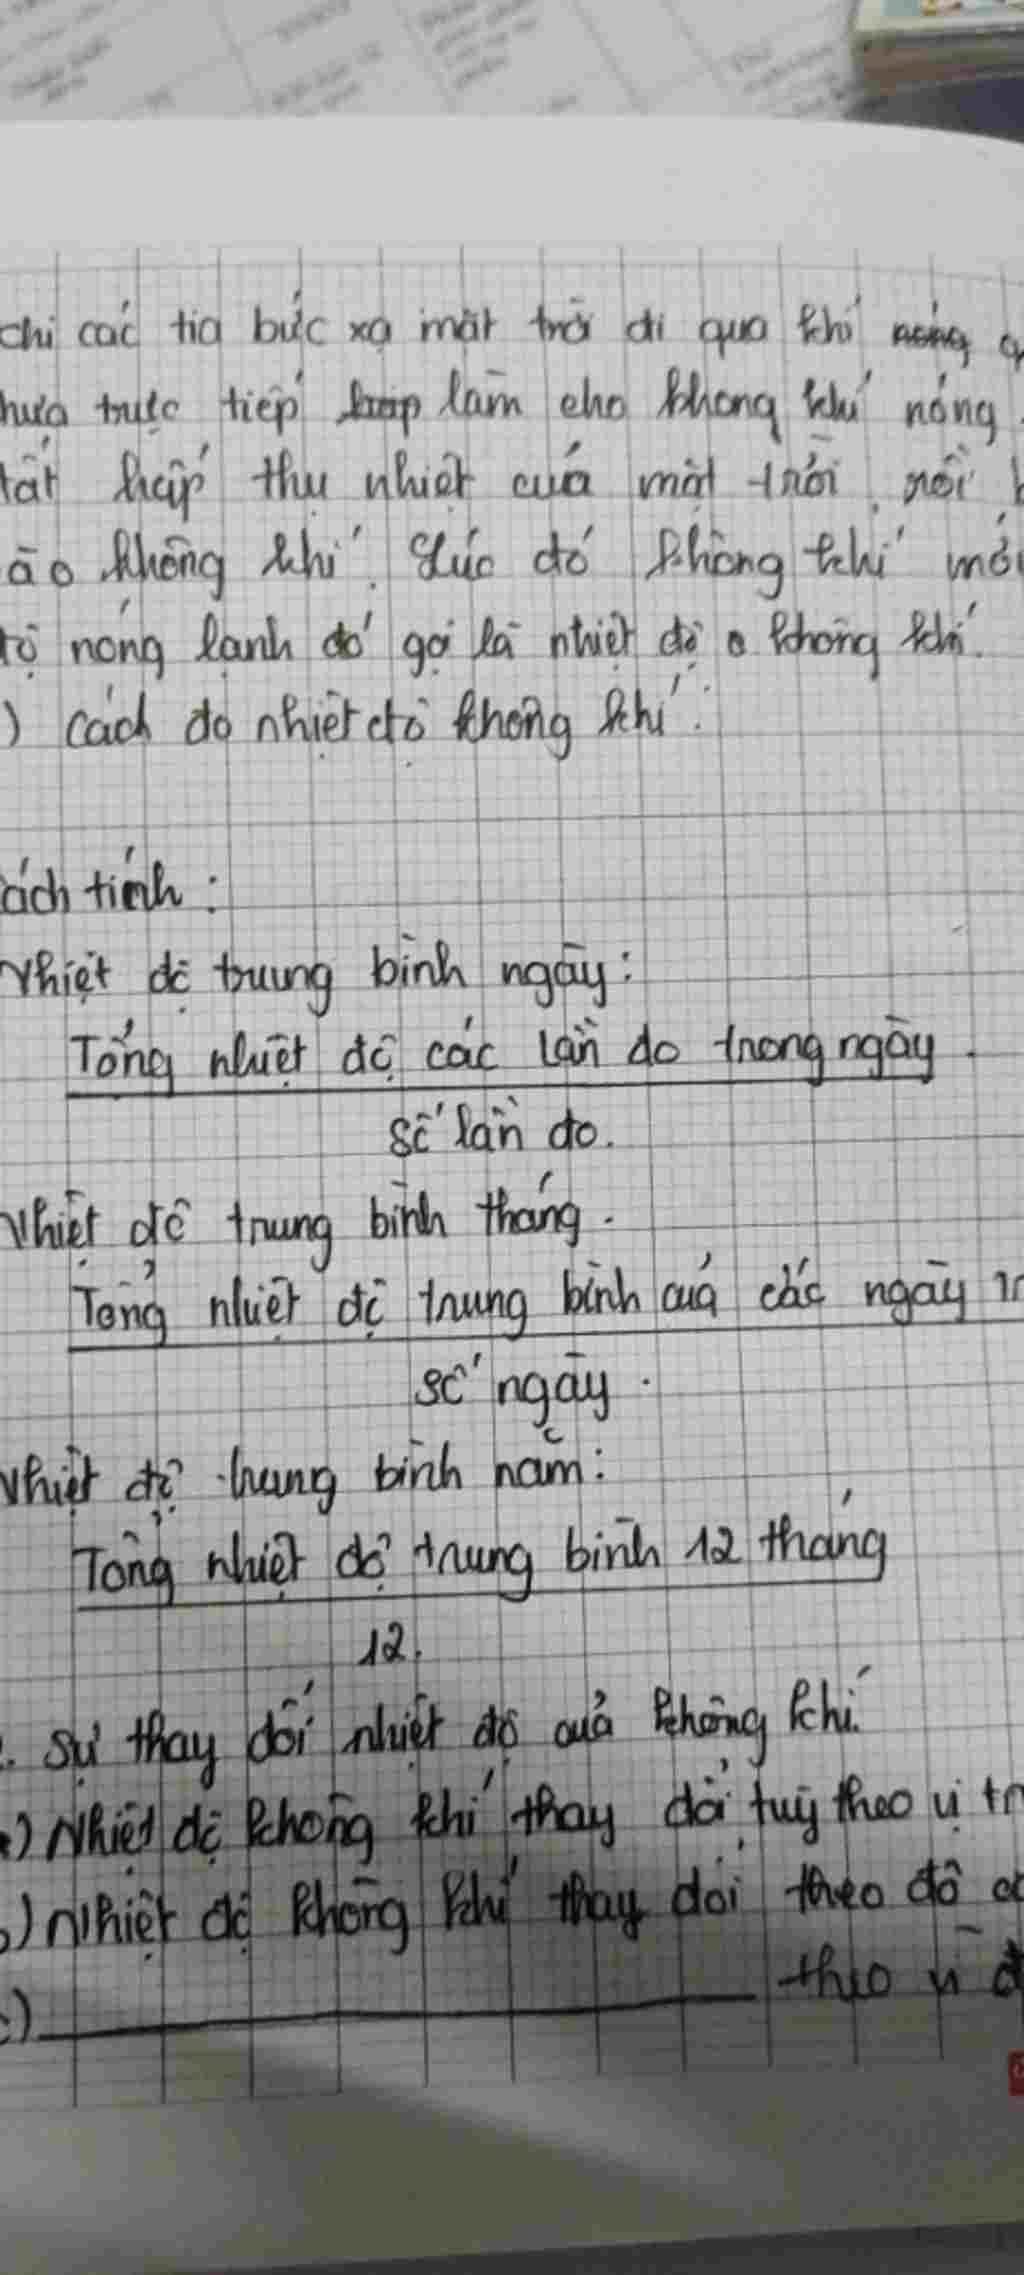 chi các tia bức xạ mặt trời đi qua khí
trực tiếp làm cho không khí nóng
hấp thụ nhiệt của mặt trời, rồi
không khí. Lúc đó không khí mới
nóng lạnh đó gọi là nhiệt độ không khí.
) Cách đo nhiệt độ không khí:
ách tính:
Nhiệt độ trung bình ngày:
Tổng nhiệt độ các lần đo trong ngày.
Số lần đo.
Nhiệt độ trung bình tháng.
Tổng nhiệt độ trung bình của các ngày
số ngày.
Nhiệt độ trung bình năm:
Tổng nhiệt độ trung bình 12 tháng
12.
. Sự thay đổi nhiệt độ của không khí.
) Nhiệt độ không khí thay đổi tuỳ theo vị tr
) Nhiệt độ không khí thay đổi theo độ
) theo vĩ đ